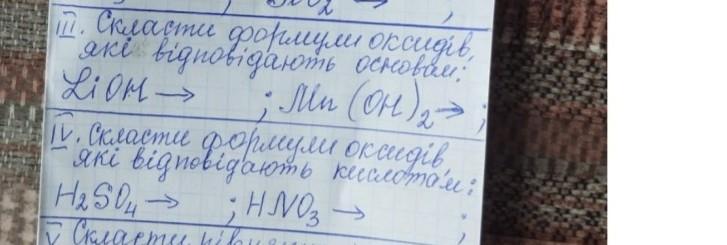 III. Скласти формули оксидів,
які відповідають основам:
LiOH → ; Mn(OH)2 → ;
IV. Скласти формули оксидів
які відповідають кислотам:
H2SO4 → ; HNO3 → ;
V. Скласти